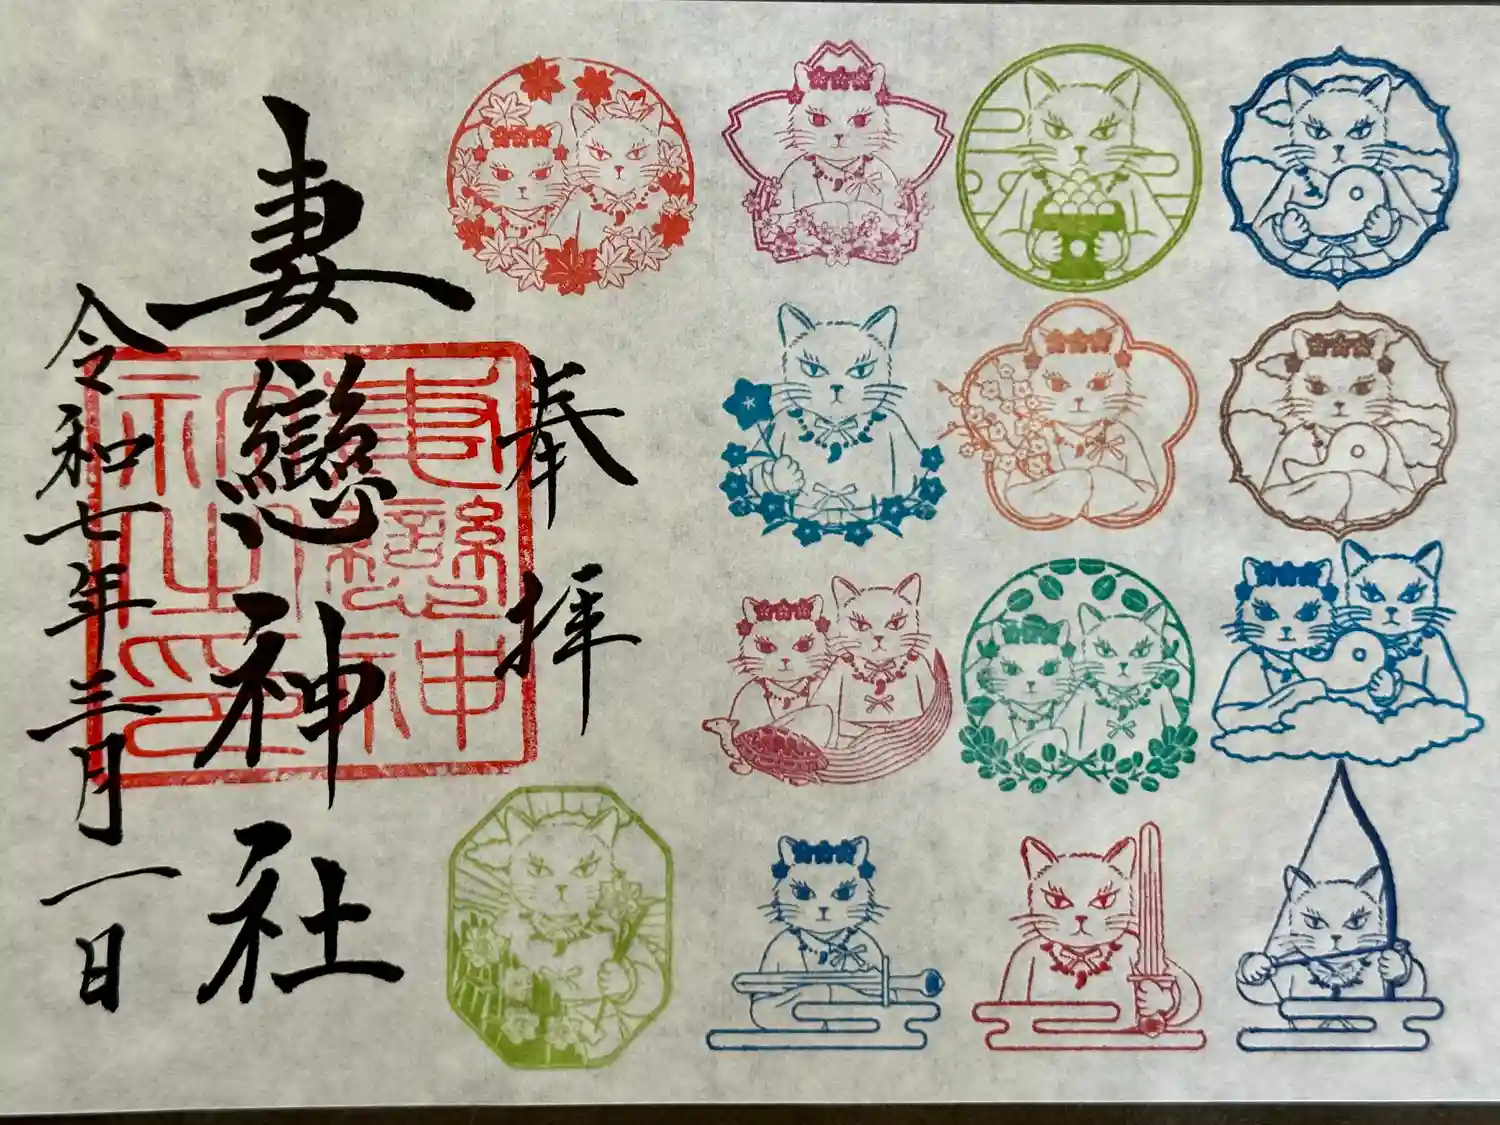 奉拝
妻戀神社
妻戀神社之印
令和七年三月一日